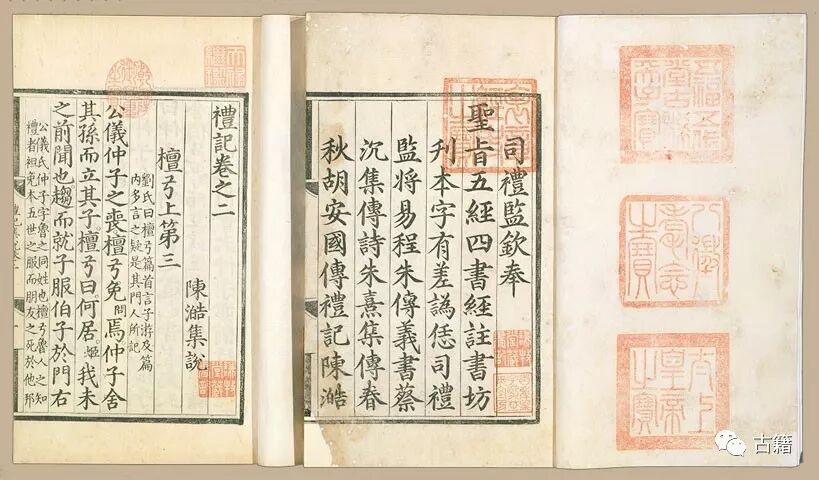 五福五代
堂古稀
天子寶
八徵
耄念
之寶
太上
皇帝
之寶
司禮監欽奉
聖旨五經四書經註書坊
刊本字有差譌恁司禮
監將易程朱傳義書蔡
沉集傳詩朱熹集傳春
秋胡安國傳禮記陳澔
禮記卷之二
陳澔集說
檀弓上第三
劉氏曰檀弓篇首言子游及篇
內多言之疑是其門人所記
公儀仲子之喪檀弓免問焉仲子舍
其孫而立其子檀弓曰何居姬我未
之前聞也趨而就子服伯子於門右
公儀氏仲子字魯之同姓也檀弓魯之知
禮者袒免本五世之服而朋友之死於他邦
古籍